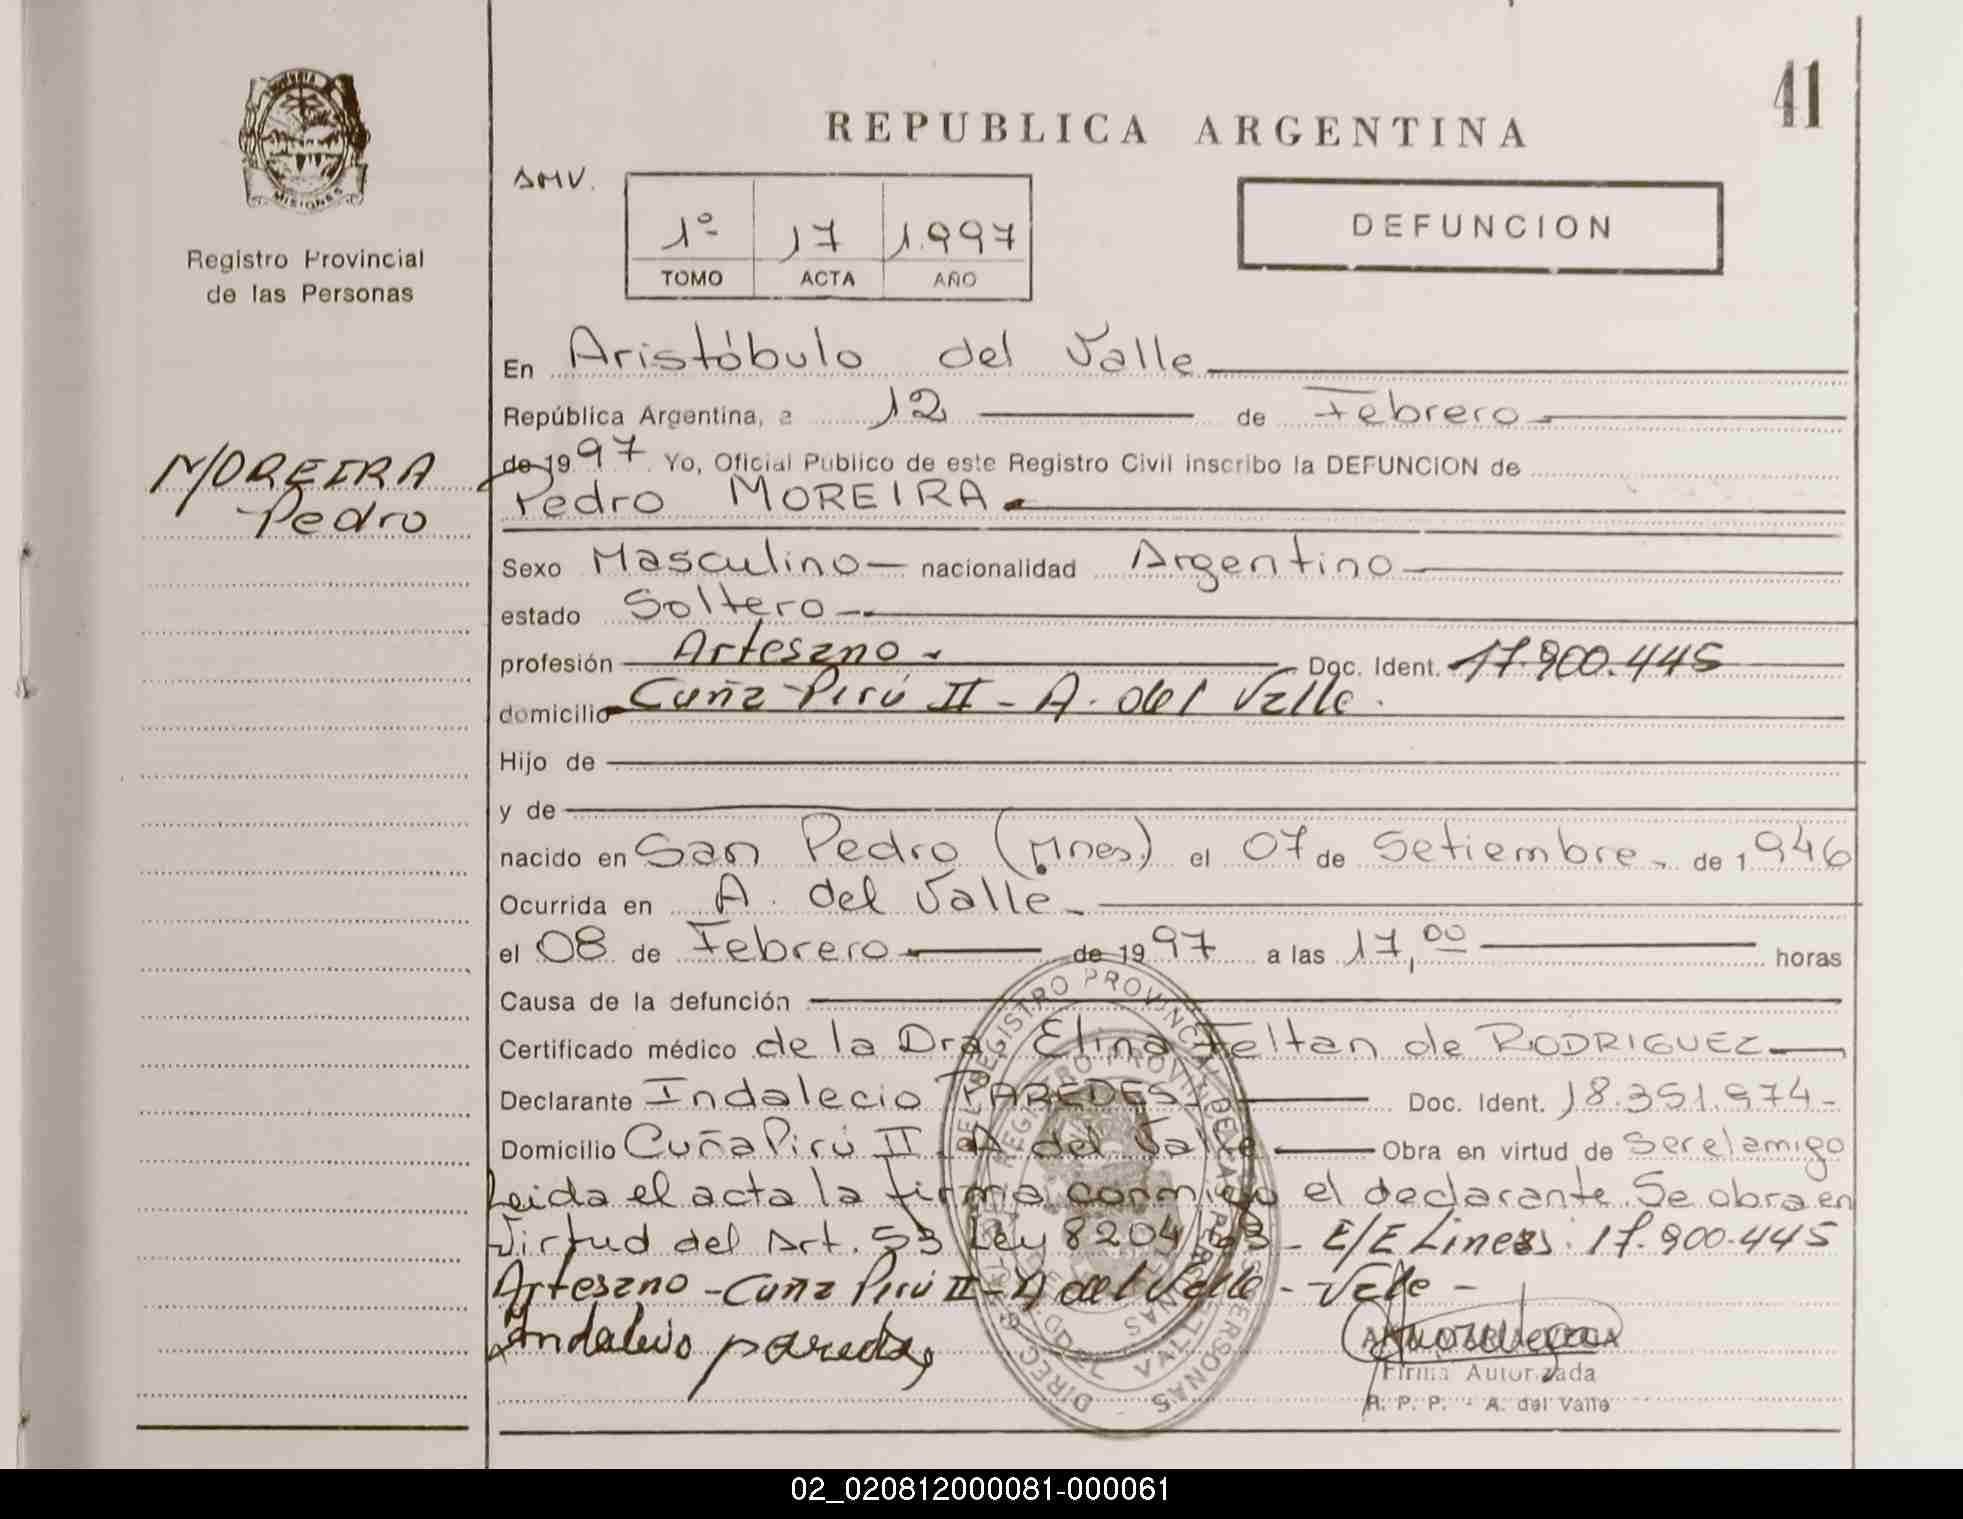 41
REPUBLICA ARGENTINA
MISIONES
Registro Provincial
de las Personas
AMV.
1º 17 1.997
TOMO ACTA AÑO
DEFUNCION
En Aristóbulo del Valle
República Argentina, a 12 de Febrero
MOREIRA
Pedro
de 1997 Yo, Oficial Publico de este Registro Civil inscribo la DEFUNCION de
Pedro MOREIRA
Sexo Masculino nacionalidad Argentino
estado Soltero
profesión Artesano Doc. Ident. 17.900.445
domicilio Cuña Pirú II - A. del Valle.
Hijo de
y de
nacido en San Pedro (Mnes.) el 07 de Setiembre de 1946
Ocurrida en A. del Valle
el 08 de Febrero de 1997 a las 17,00 horas
Causa de la defunción
Certificado médico de la Dra. Elina Feltan de RODRIGUEZ
Declarante Indalecio PAREDES Doc. Ident. 18.351.974-
Domicilio Cuña Pirú II A del Valle Obra en virtud de Ser el amigo
Leida el acta la firma conmigo el declarante. Se obra en
Virtud del Art. 53 Ley 8204/63 - E/E Lineas: 17.900.445
Artesano - Cuña Pirú II - A del Valle - Vale -
Indalecio paredes
Firma Autorizada
R. P. P. - A. del Valle
02_020812000081-000061